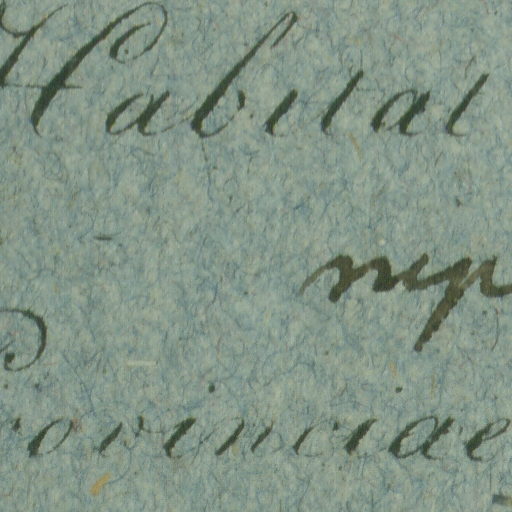 Habitat
Provinciae